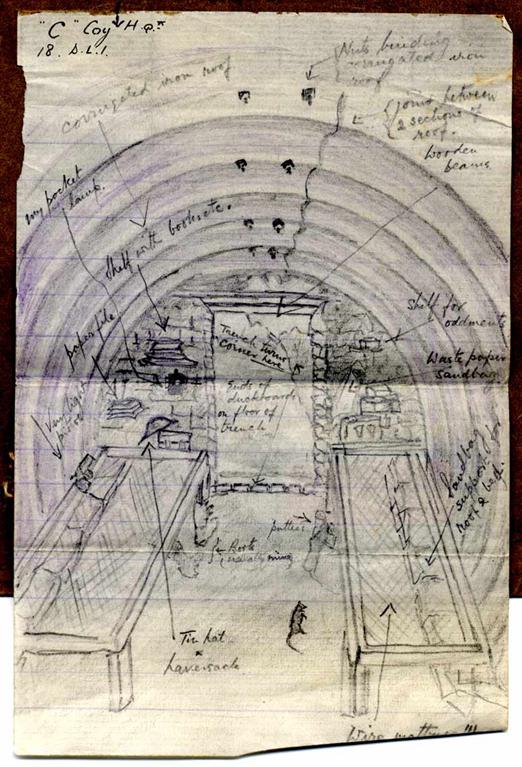 "C" Coy H.Qrs
18. D.L.I.
Nuts binding
corrugated iron
roof
corrugated iron roof
joint between
2 sections of
roof.
Wooden
beams
my pocket
lamp.
Shelf with books etc.
paper file
Shelf for
oddments
Trench turns
corner here
Waste paper
sandbag
Very light
pistol
Ends of
duckboards
on floor of
trench
Sandbag
support for
roof & bed.
putties
Boots
usually mine
Tin hat
&
haversack
Wire mattress!!!